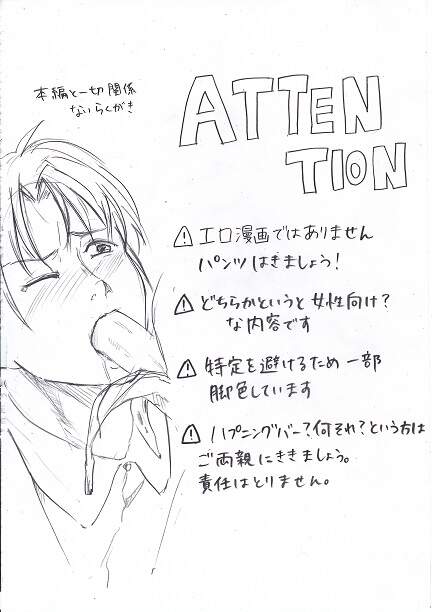 本編と一切関係
ないらくがき
ATTEN
TION
⚠ エロ漫画ではありません
パンツはきましょう!
⚠ どちらかというと女性向け?
な内容です
⚠ 特定を避けるため一部
脚色しています
⚠ ハプニングバー?何それ?という方は
ご両親にききましょう。
責任はとりません。